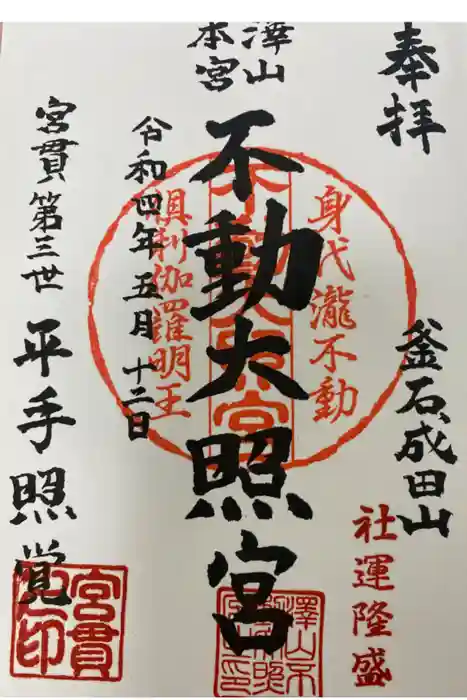 奉拝
釜石成田山
社運隆盛
澤山
本宮
不動大照宮
身代瀧不動
不動大照宮
倶利伽羅明王
令和四年五月十二日
宮貫第三世
平手照覚
宮貫